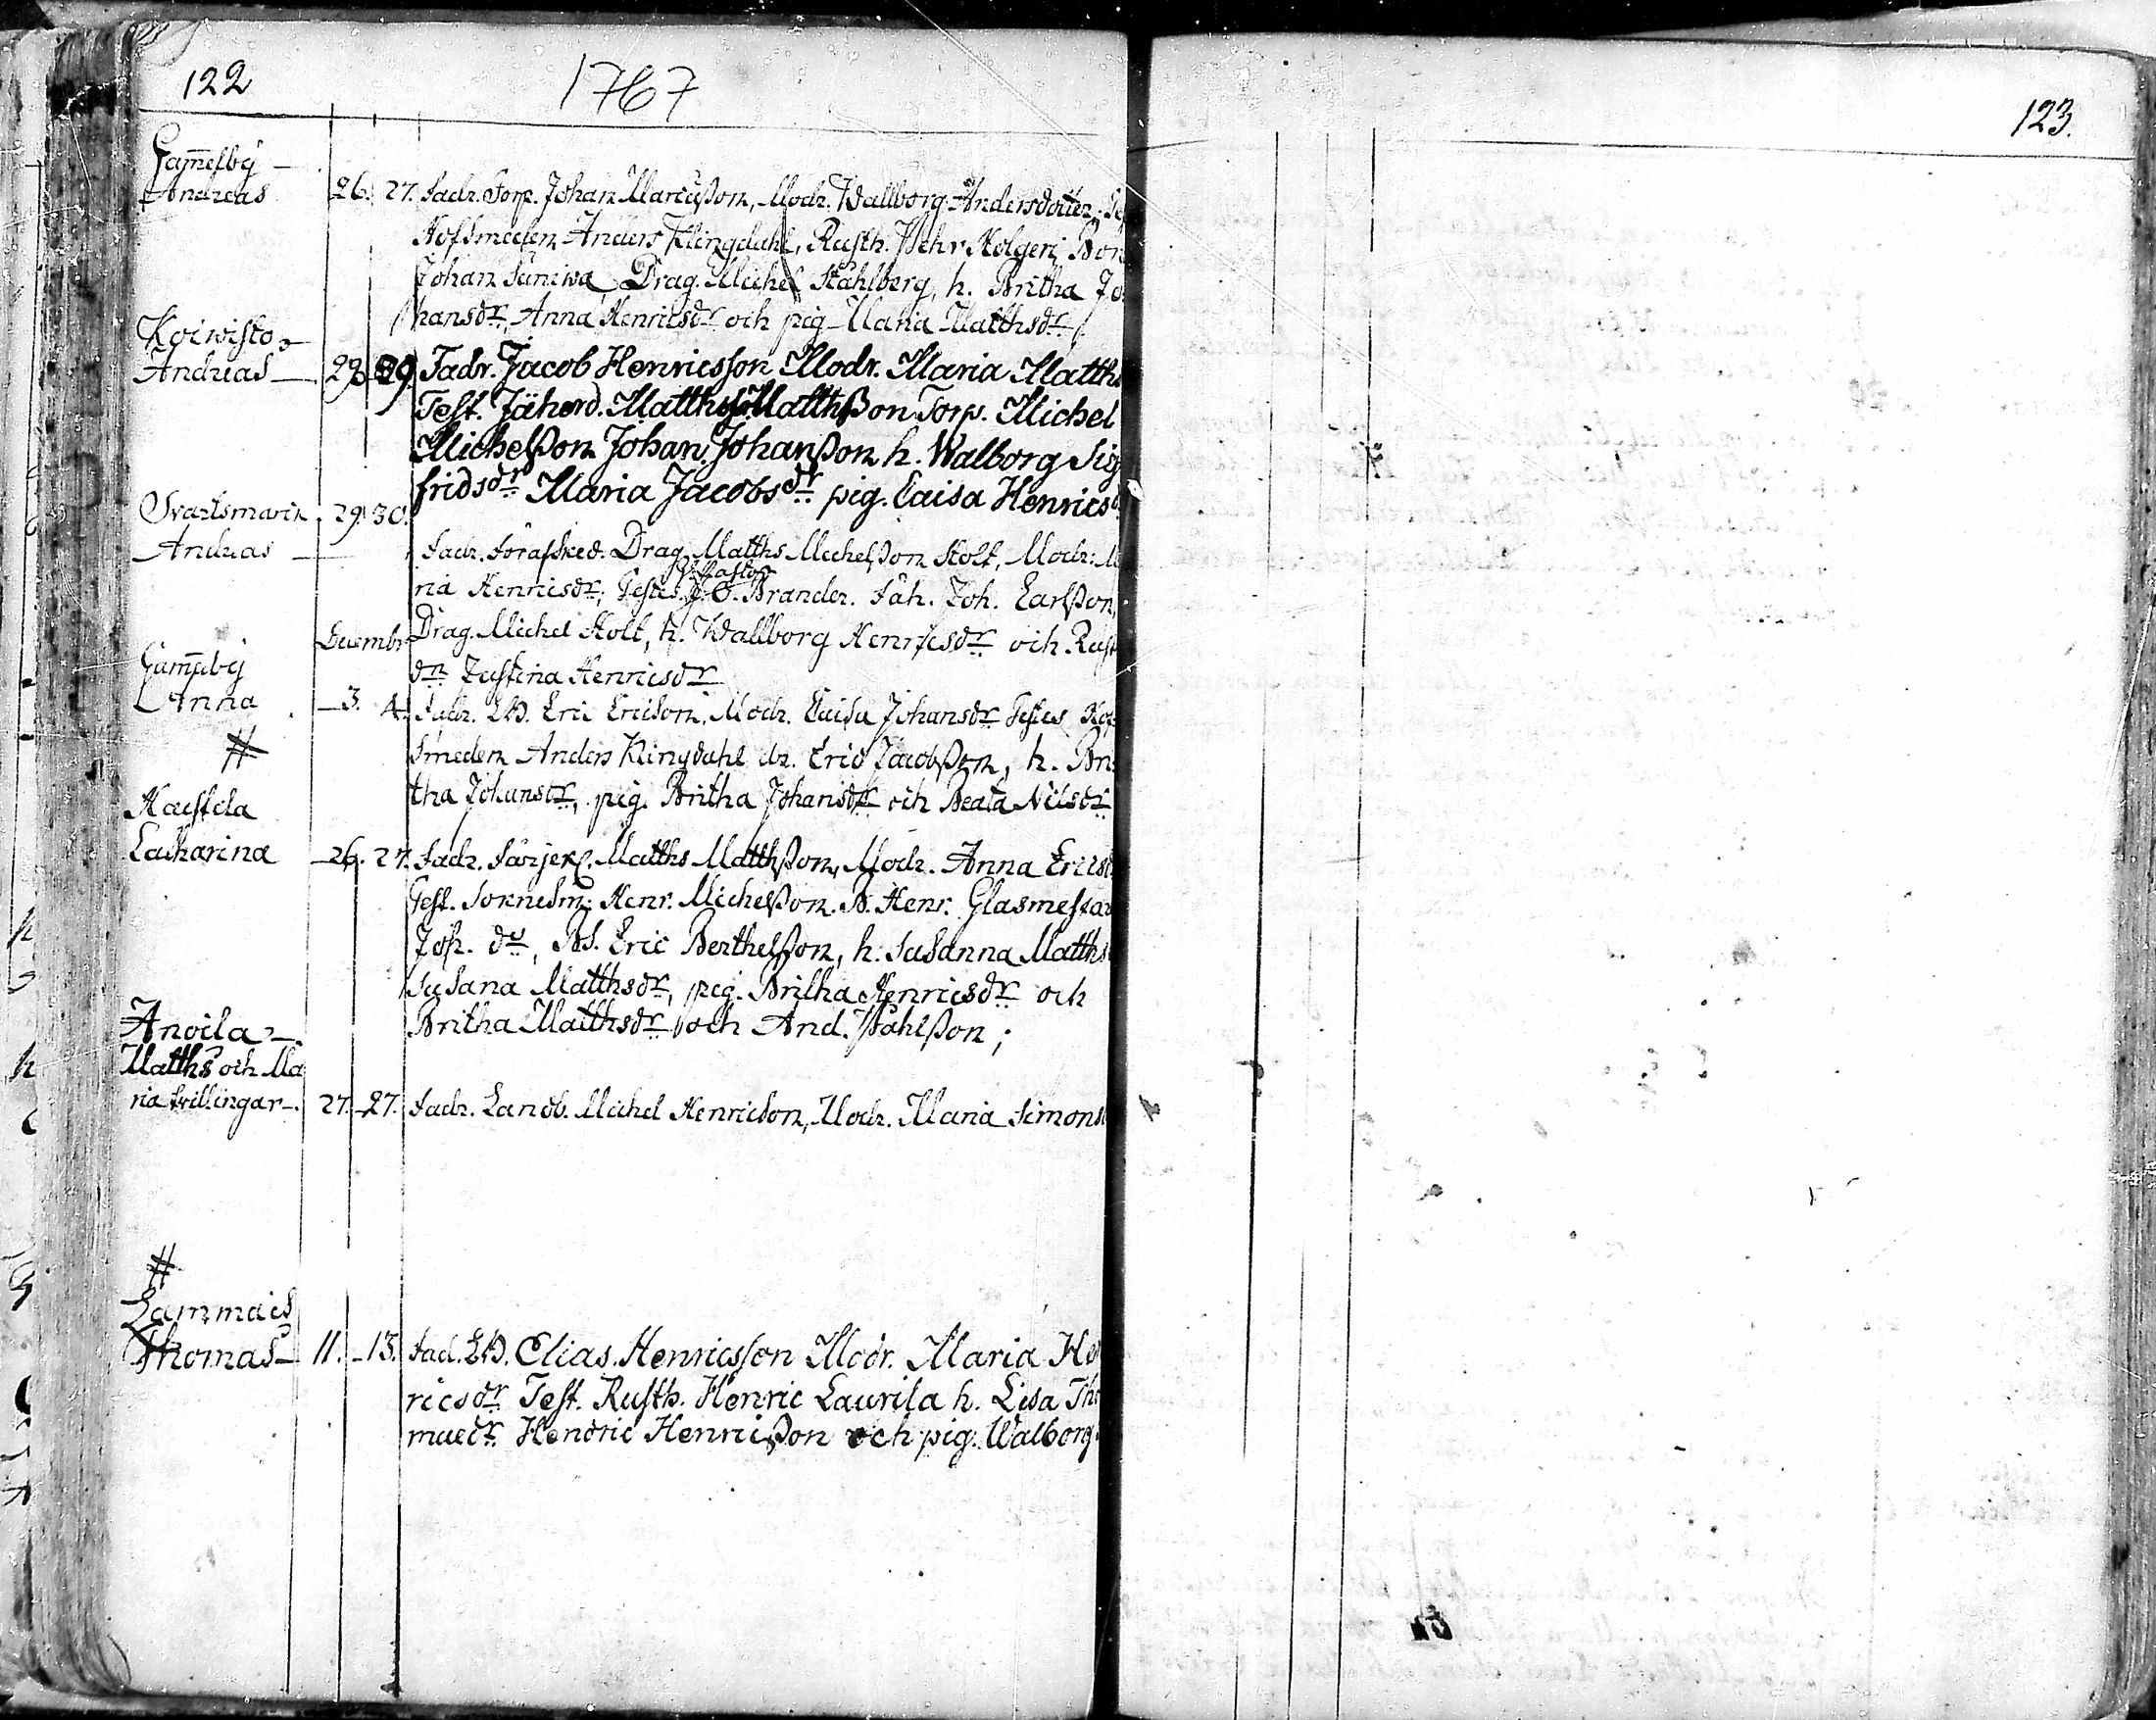 122
1767
Gam̄elby
Andreas 26. 27. Fadr. Torp. Johan Marcusson, Modr. Wallborg Andersdotter,
Hofsmeden Anders Klingdahl, Rusth. Pehr Holgeri Bon
Johan Suniwa, Drag. Michel Ståhlberg, h. Britha Jo
hansdr, Anna Henricsdr och pig Maria Matthsdr
Koiwisto
Andreas 29 Fadr. Jacob Henricsson Modr. Maria Matths
Test. Matthsson Torp. Michel
Michelsson Johan Johansson h. Walborg Sig
fridsdr Maria Jacobsdr pig. Caisa Henrics
Svartsmark 29. 30.
Andreas Fadr. Drag. Matths Michelsson Stolt, Modr: Ma
ria Henricsdr, Testes Brander. Joh. Carlsson,
Decembr Drag. Michel Stolt, h. Wallborg Henricsdr och Rust
Gam̄elby
dr Justina Henricsdr
Anna 3. 4. Fadr. LB. Eric Ericsson, Modr. Caisa Johansdr Testes Hof
smeden Anders Klingdahl dr. Eric Jacobsson, h. Bri
tha Johansdr, pig. Britha Johansdr och Beata Nilsdr
Haistila
Catharina 26. 27. Fadr. Matths Matthsson, Modr. Anna Ericsd
Test. Henr. Michelsson. B. Henr. Glasmestar
Eric Berthelsson, h. Susanna Matths
Susana Matthsdr, pig. Britha Henricsdr och
Britha Matthsdr och And. Påhlsson;
Anoila
Matths och Ma
ria tvillingar 27. 27. Fadr. Landb. Michel Henricson, Modr. Maria Simons
Lammais
Thomas 11. 13. Fad. LB. Elias Henricsson Modr. Maria Hen
ricsdr Test. Rusth. Henric Laurila h. Lisa Tho
Hendric Henricsson och pig. Walborg
123.